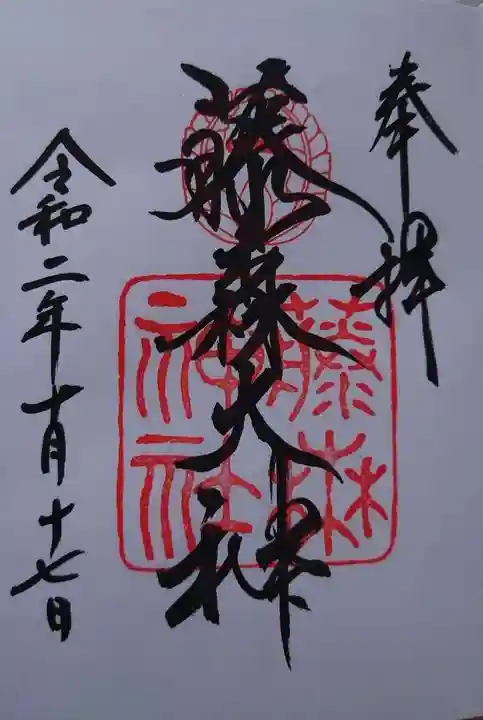 奉拝
藤森大神
藤森
神社
令和二年十月十七日